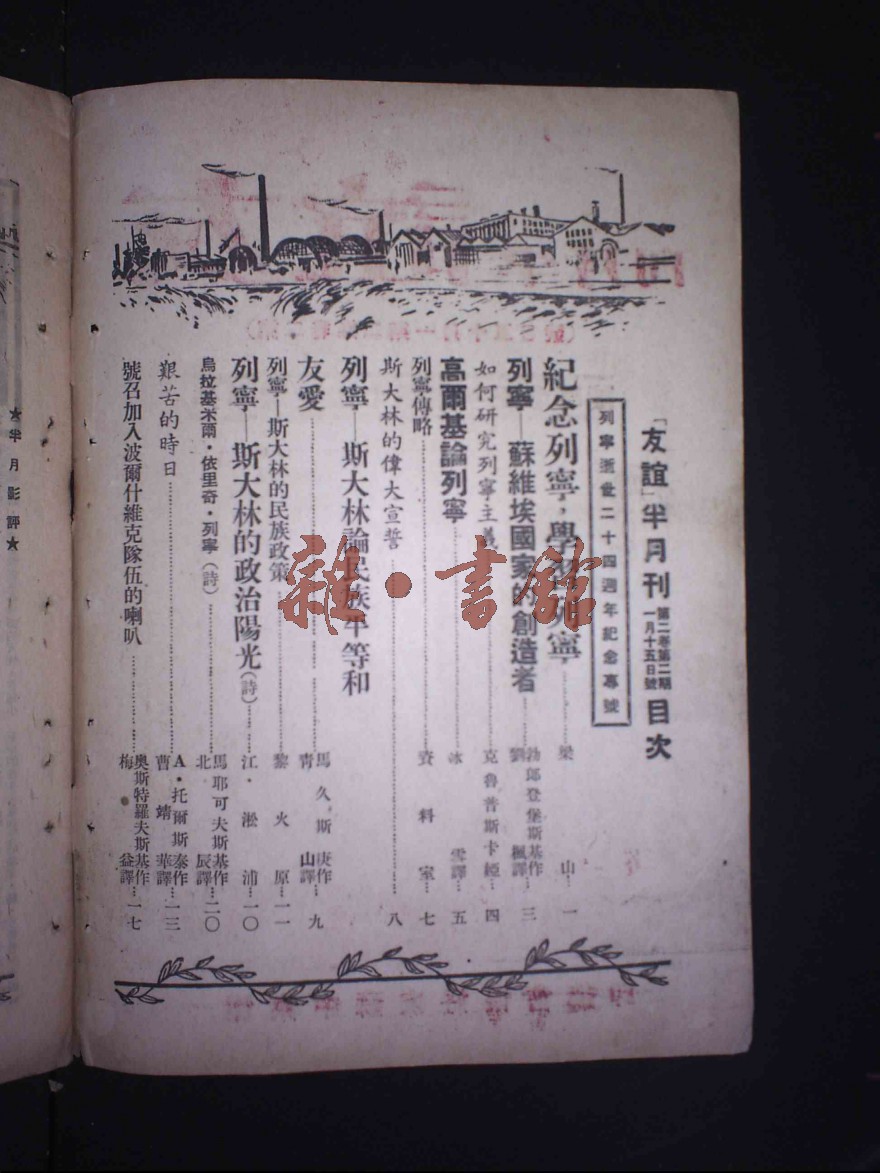 「友誼」半月刊 第二卷第二期 一月十五日號 目次
列寧逝世二十四週年紀念專號
紀念列寧，學習列寧 梁山 一
列寧—蘇維埃國家的創造者 勃郎登堡斯基作 劉楓譯 三
如何研究列寧主義 克魯普斯卡婭 四
高爾基論列寧 冰雪譯 五
列寧傳略 資料室 七
斯大林的偉大宣誓 八
列寧—斯大林論民族平等和
友愛 馬久斯庚作 青山譯 九
列寧—斯大林的民族政策 黎火原 一一
列寧—斯大林的政治陽光（詩） 江·淞浦 一〇
烏拉基米爾·依里奇·列寧（詩） 馬耶可夫斯基作 北辰譯 二〇
艱苦的時日 A·托爾斯泰作 曹靖華譯 一三
號召加入波爾什維克隊伍的喇叭 奧斯特羅夫斯基作 梅益譯 一七
★半月影評★
雜·書館